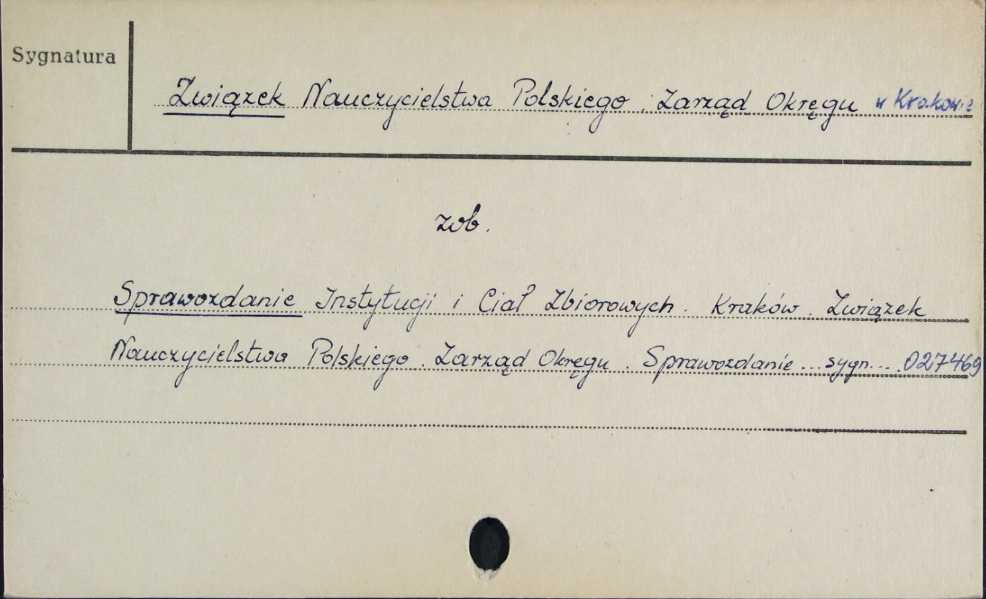 Sygnatura
Związek Nauczycielstwa Polskiego. Zarząd Okręgu w Krakowie
zob.
Sprawozdanie Instytucji i Ciał Zbiorowych. Kraków. Związek
Nauczycielstwa Polskiego. Zarząd Okręgu. Sprawozdanie... sygn.... 027469